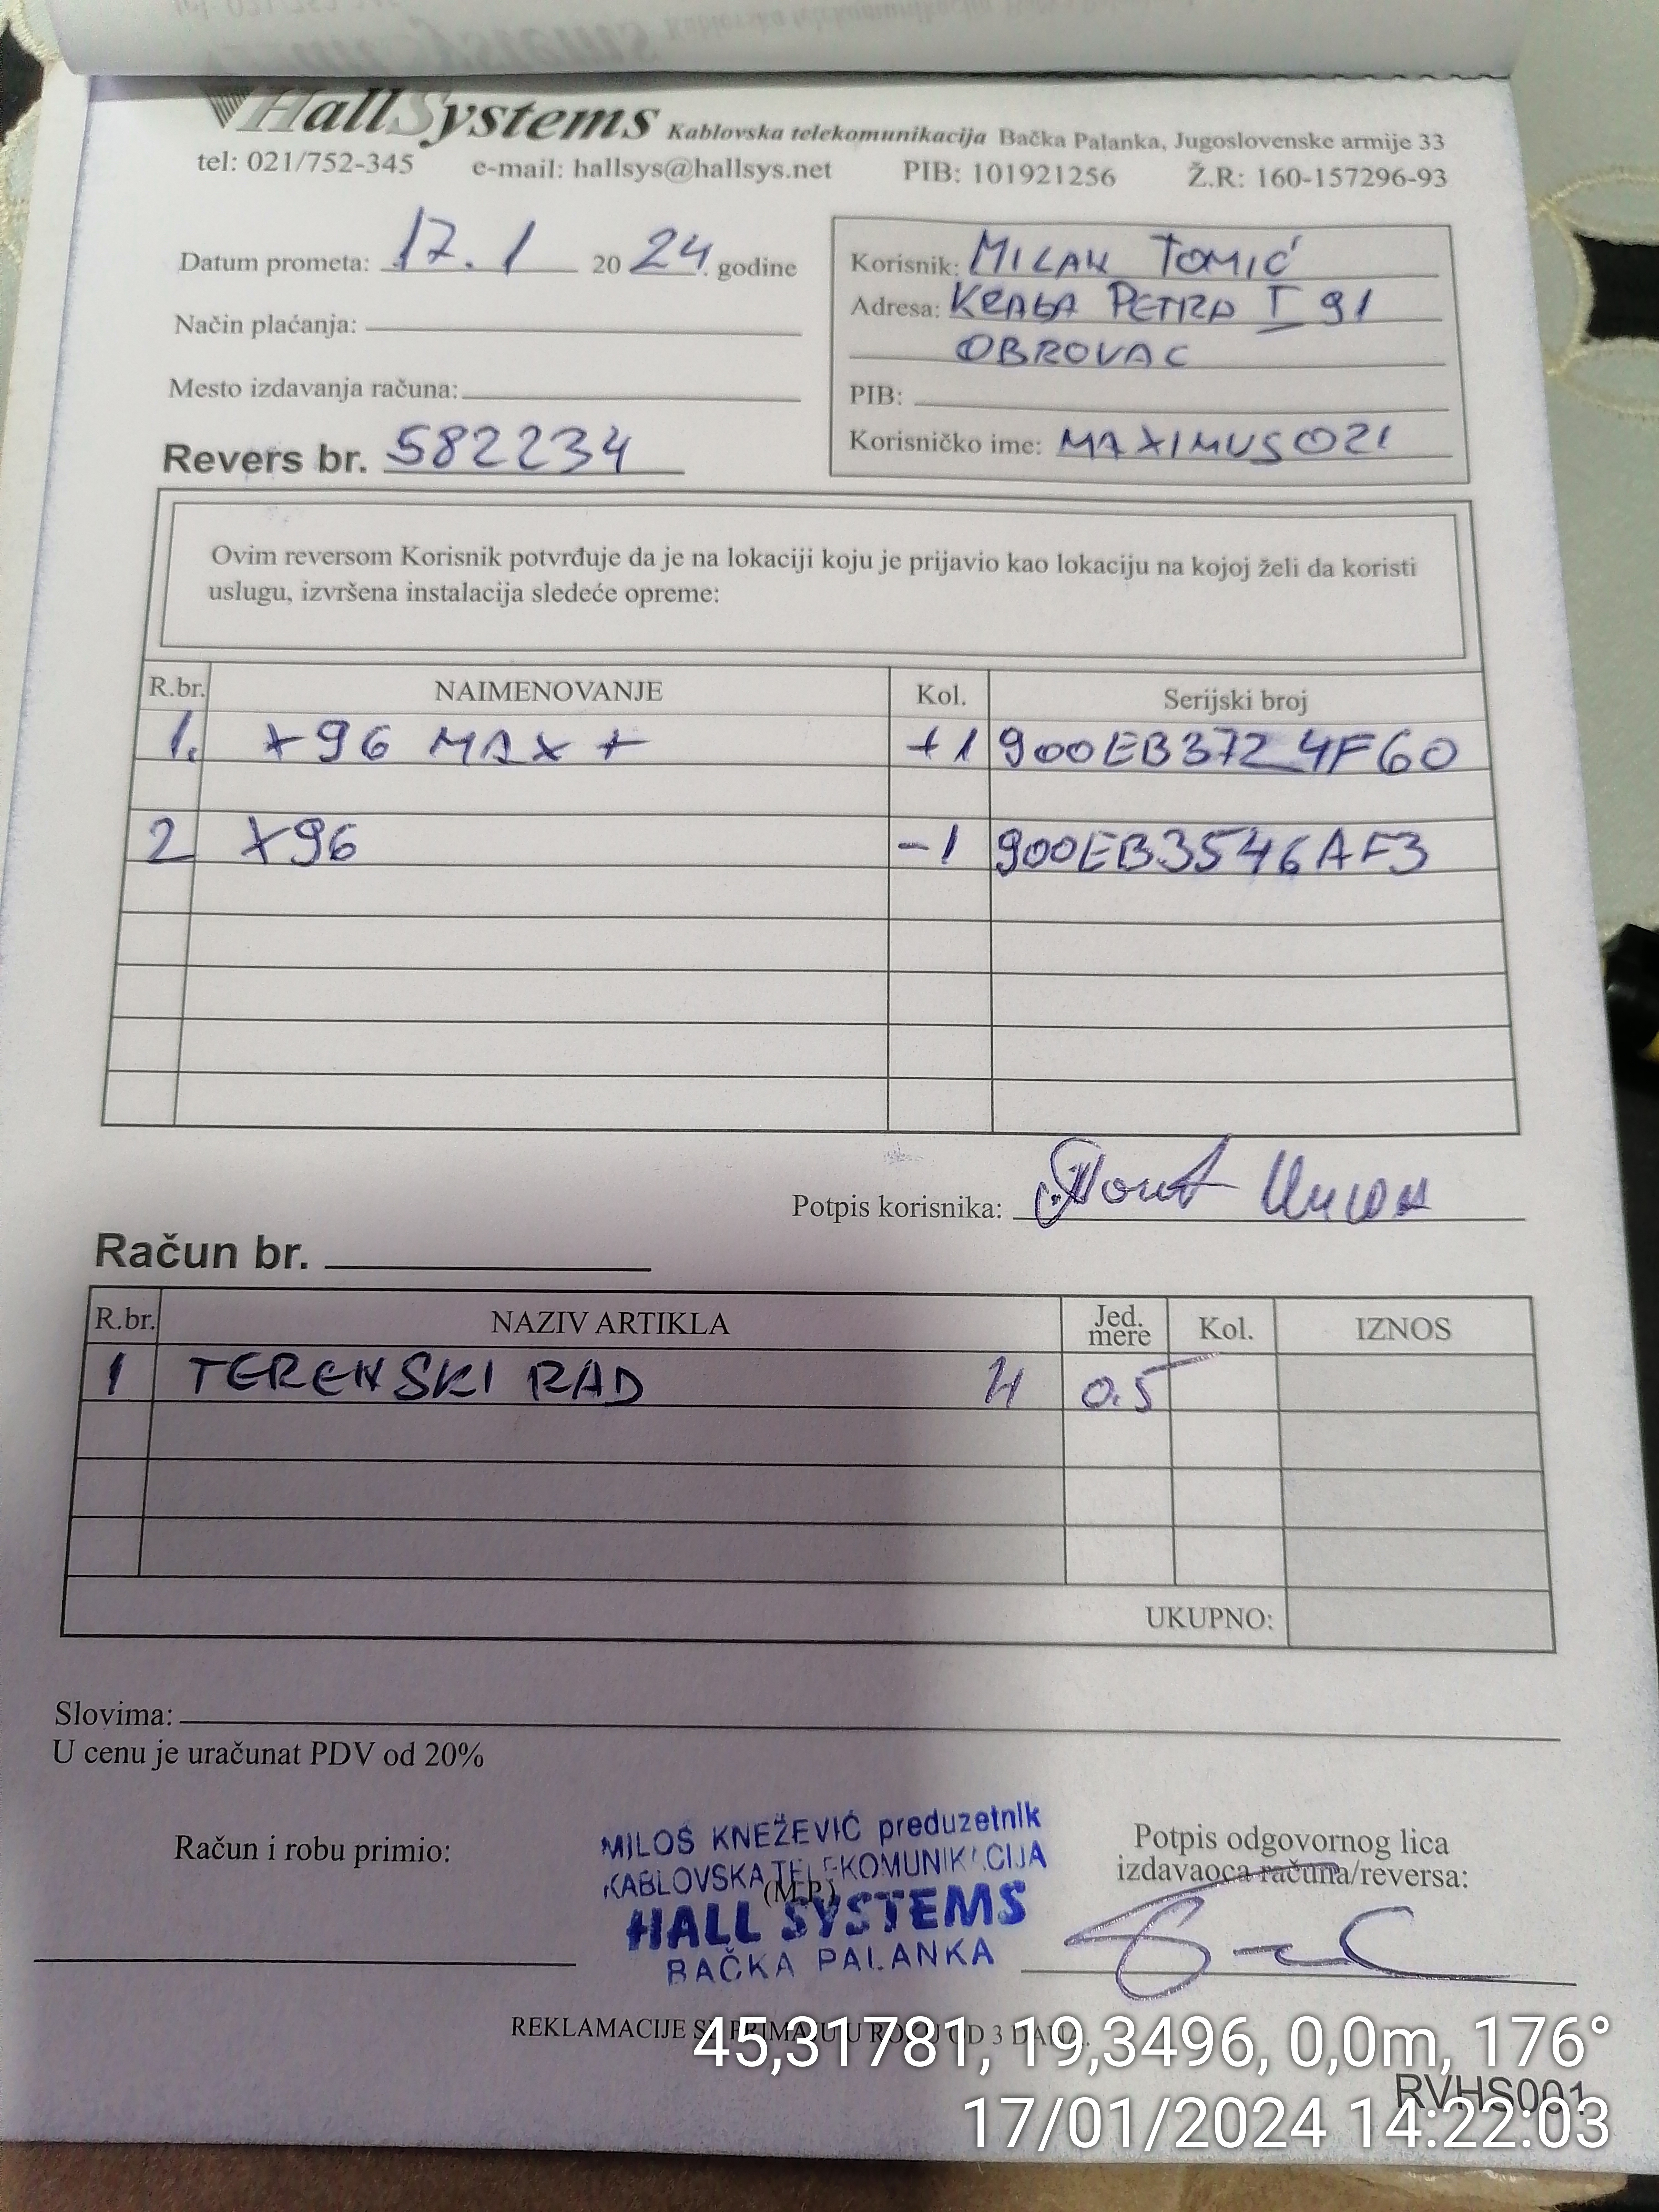 HallSystems Kablovska telekomunikacija Bačka Palanka, Jugoslovenske armije 33
tel: 021/752-345 e-mail: hallsys@hallsys.net PIB: 101921256 Ž.R: 160-157296-93
Datum prometa: 17.1 2024. godine
Način plaćanja:
Mesto izdavanja računa:
Revers br. 582234
Korisnik: MILAN TOMIĆ
Adresa: KRALA PETRA I 91
OBROVAC
PIB:
Korisničko ime: MAXIMUS021
Ovim reversom Korisnik potvrđuje da je na lokaciji koju je prijavio kao lokaciju na kojoj želi da koristi
uslugu, izvršena instalacija sledeće opreme:
R.br. NAIMENOVANJE Kol. Serijski broj
1. X96 MAX + +1 900EB3724F60
2 X96 -1 900EB3546AF3
Potpis korisnika:
Račun br.
R.br. NAZIV ARTIKLA Jed. mere Kol. IZNOS
1 TERENSKI RAD H 0.5
UKUPNO:
Slovima:
U cenu je uračunat PDV od 20%
Račun i robu primio:
MILOŠ KNEŽEVIĆ preduzetnik
KABLOVSKA TELEKOMUNIKACIJA
(M.P.)
HALL SYSTEMS
BAČKA PALANKA
Potpis odgovornog lica
izdavaoca računa/reversa:
REKLAMACIJE SE PRIMAJU U ROKU OD 3 DANA.
45,31781, 19,3496, 0,0m, 176°
RVHS001
17/01/2024 14:22:03